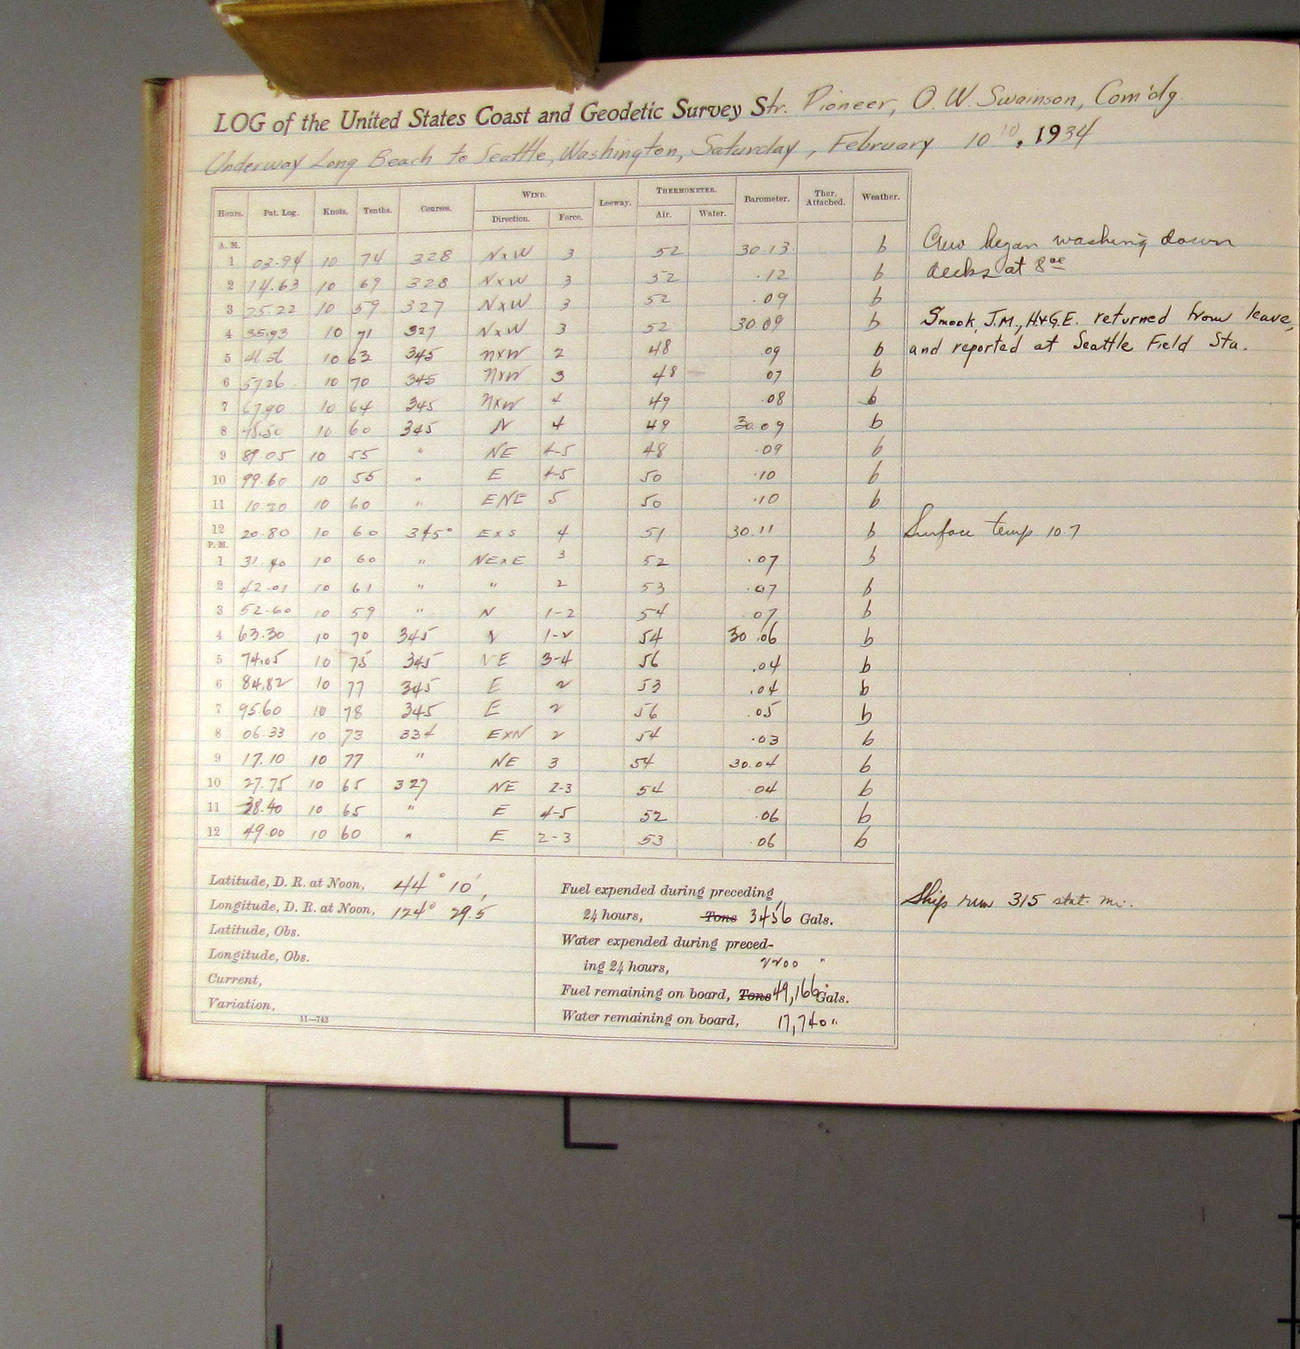 LOG of the United States Coast and Geodetic Survey Str. Pioneer, O. W. Swainson, Com'dg.
Underway Long Beach to Seattle, Washington, Saturday, February 10 10, 1934
Hours. Pat. Log. Knots. Tenths. Courses. WIND. Leeway. THERMOMETER. Barometer. Ther. Attached. Weather.
Direction. Force. Air. Water.
A. M.
1 03.94 10 74 328 NxW 3 52 30.13 b Crew began washing down
2 14.63 10 69 328 NxW 3 52 .12 b decks at 8
3 25.22 10 59 327 NxW 3 52 .09 b
4 35.93 10 71 327 NxW 3 52 30.09 b Smook, J.M., H&G.E. returned from leave,
5 10 63 345 NxW 2 48 09 b and reported at Seattle Field Sta.
6 57.26 10 70 345 NxW 3 48 07 b
7 67.90 10 64 345 NxW 4 49 .08 b
8 10 60 345 N 4 49 30.09 b
9 89.05 10 55 " NE 4-5 48 .09 b
10 99.60 10 55 " E 4-5 50 .10 b
11 10.20 10 60 " ENE 5 50 .10 b
12 20.80 10 60 345° ExS 4 51 30.11 b Surface temp 10.7
P. M.
1 31.40 10 60 " NExE 3 52 .07 b
2 42.01 10 61 " " 2 53 .07 b
3 52.60 10 59 " N 1-2 54 .07 b
4 63.30 10 70 345 N 1-2 54 30.06 b
5 74.05 10 75 345 NE 3-4 56 .04 b
6 84.82 10 77 345 E 2 53 .04 b
7 95.60 10 78 345 E 2 56 .05 b
8 06.33 10 73 334 ExN 2 54 .03 b
9 17.10 10 77 " NE 3 54 30.04 b
10 27.75 10 65 327 NE 2-3 54 .04 b
11 38.40 10 65 " E 4-5 52 .06 b
12 49.00 10 60 " E 2-3 53 .06 b
Latitude, D. R. at Noon, 44° 10'
Longitude, D. R. at Noon, 124° 29.5
Latitude, Obs.
Longitude, Obs.
Current,
Variation,
11—743
Fuel expended during preceding
24 hours, Tons 3456 Gals.
Water expended during preced-
ing 24 hours, 2200 "
Fuel remaining on board, Tons 49,166 Gals.
Water remaining on board, 17,740 "
Ship run 315 stat. mi.